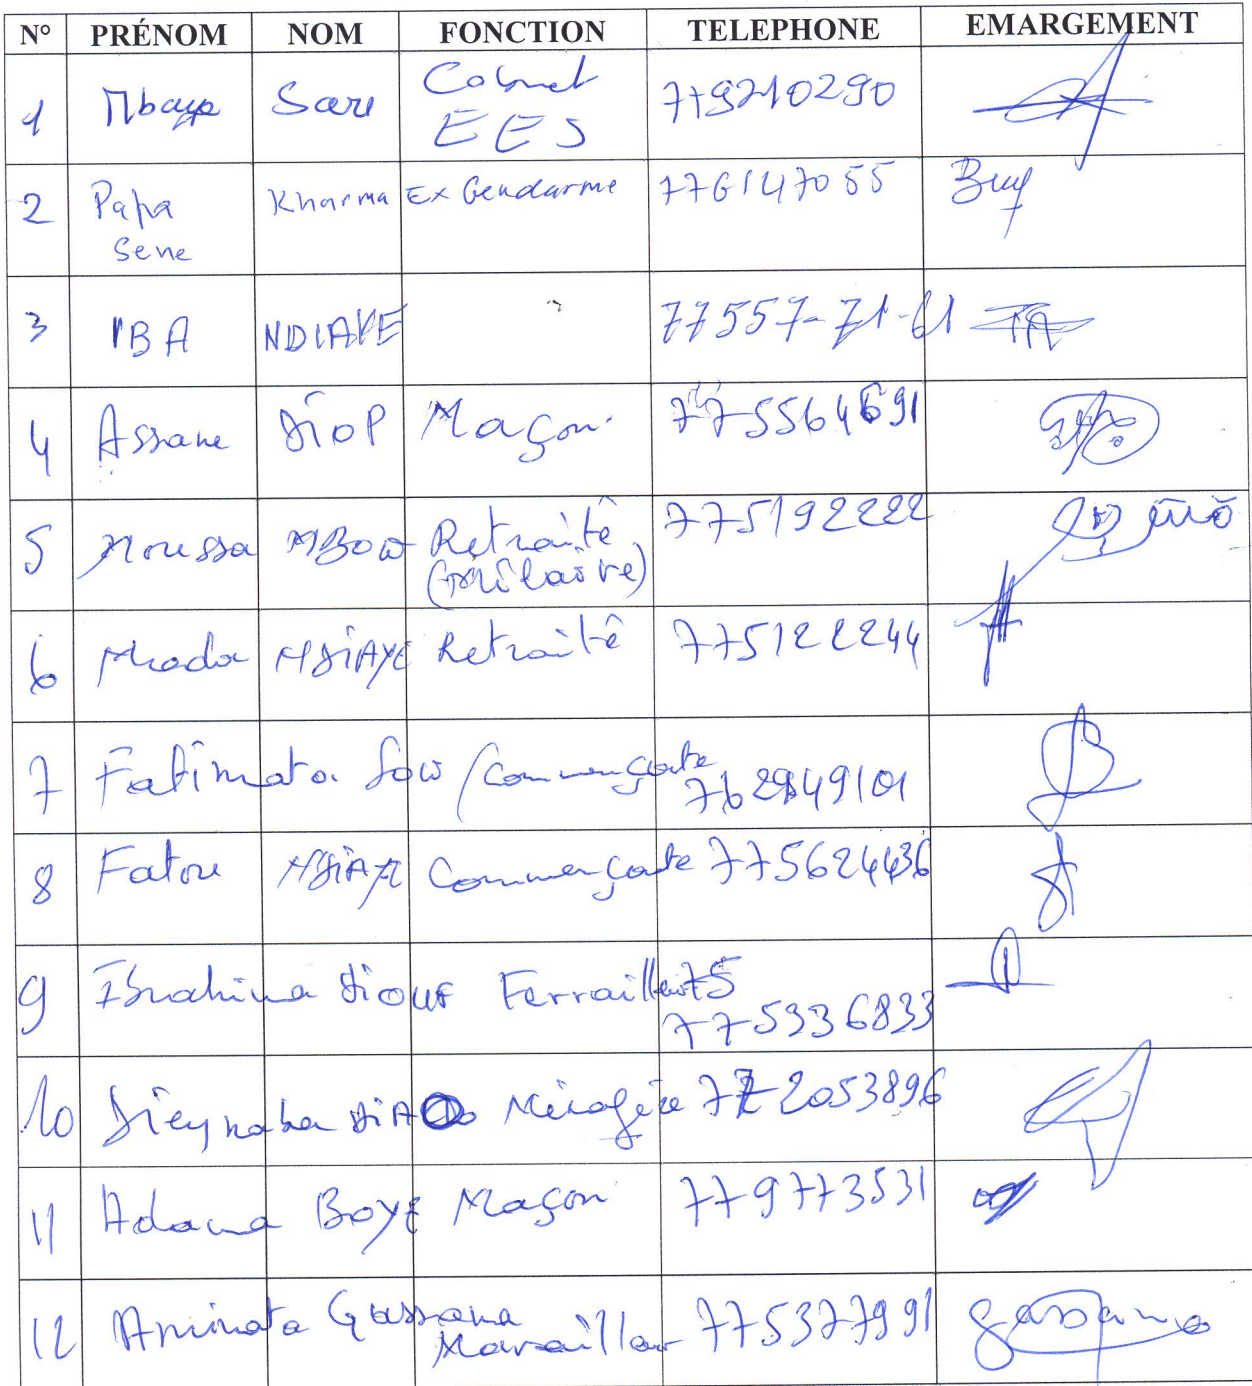 N° PRÉNOM NOM FONCTION TELEPHONE EMARGEMENT
1 Mbaye Sarr Cabinet EES 779210290
2 Papa Sene Kharma Ex Gendarme 776147055
3 IBA NDIAYE 77557-71-61
4 Assane DIOP Maçon 775564691
5 Moussa MBOW Retraité (militaire) 775192222
6 Mada NDIAYE Retraité 775122244
7 Fatimata Sow / Commerçante 762949101
8 Fatou NDIAYE Commerçante 775624436
9 Ibrahima Diouf Ferrailleur 75
775336833
10 Dieynaba DIAO Ménagère 772053896
11 Adama BOYE Maçon 779773531
12 Aminata Gassama 775377991 Gassama